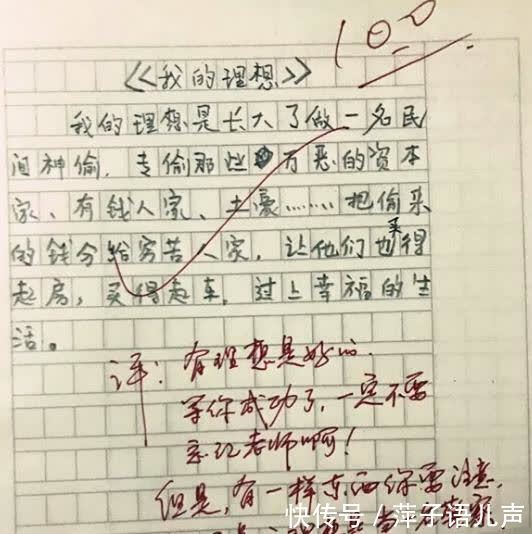 100
《我的理想》
我的理想是长大了做一名民
间神偷，专偷那些万恶的资本
家、有钱人家、土豪……把偷来
的钱分给穷苦人家，让他们也买得
起房，买得起车，过上幸福的生
活。
评：有理想是好的，
等你成功了，一定不要
忘记老师啊！
但是，有一样东西你要注意，
快传号/萍子语儿声